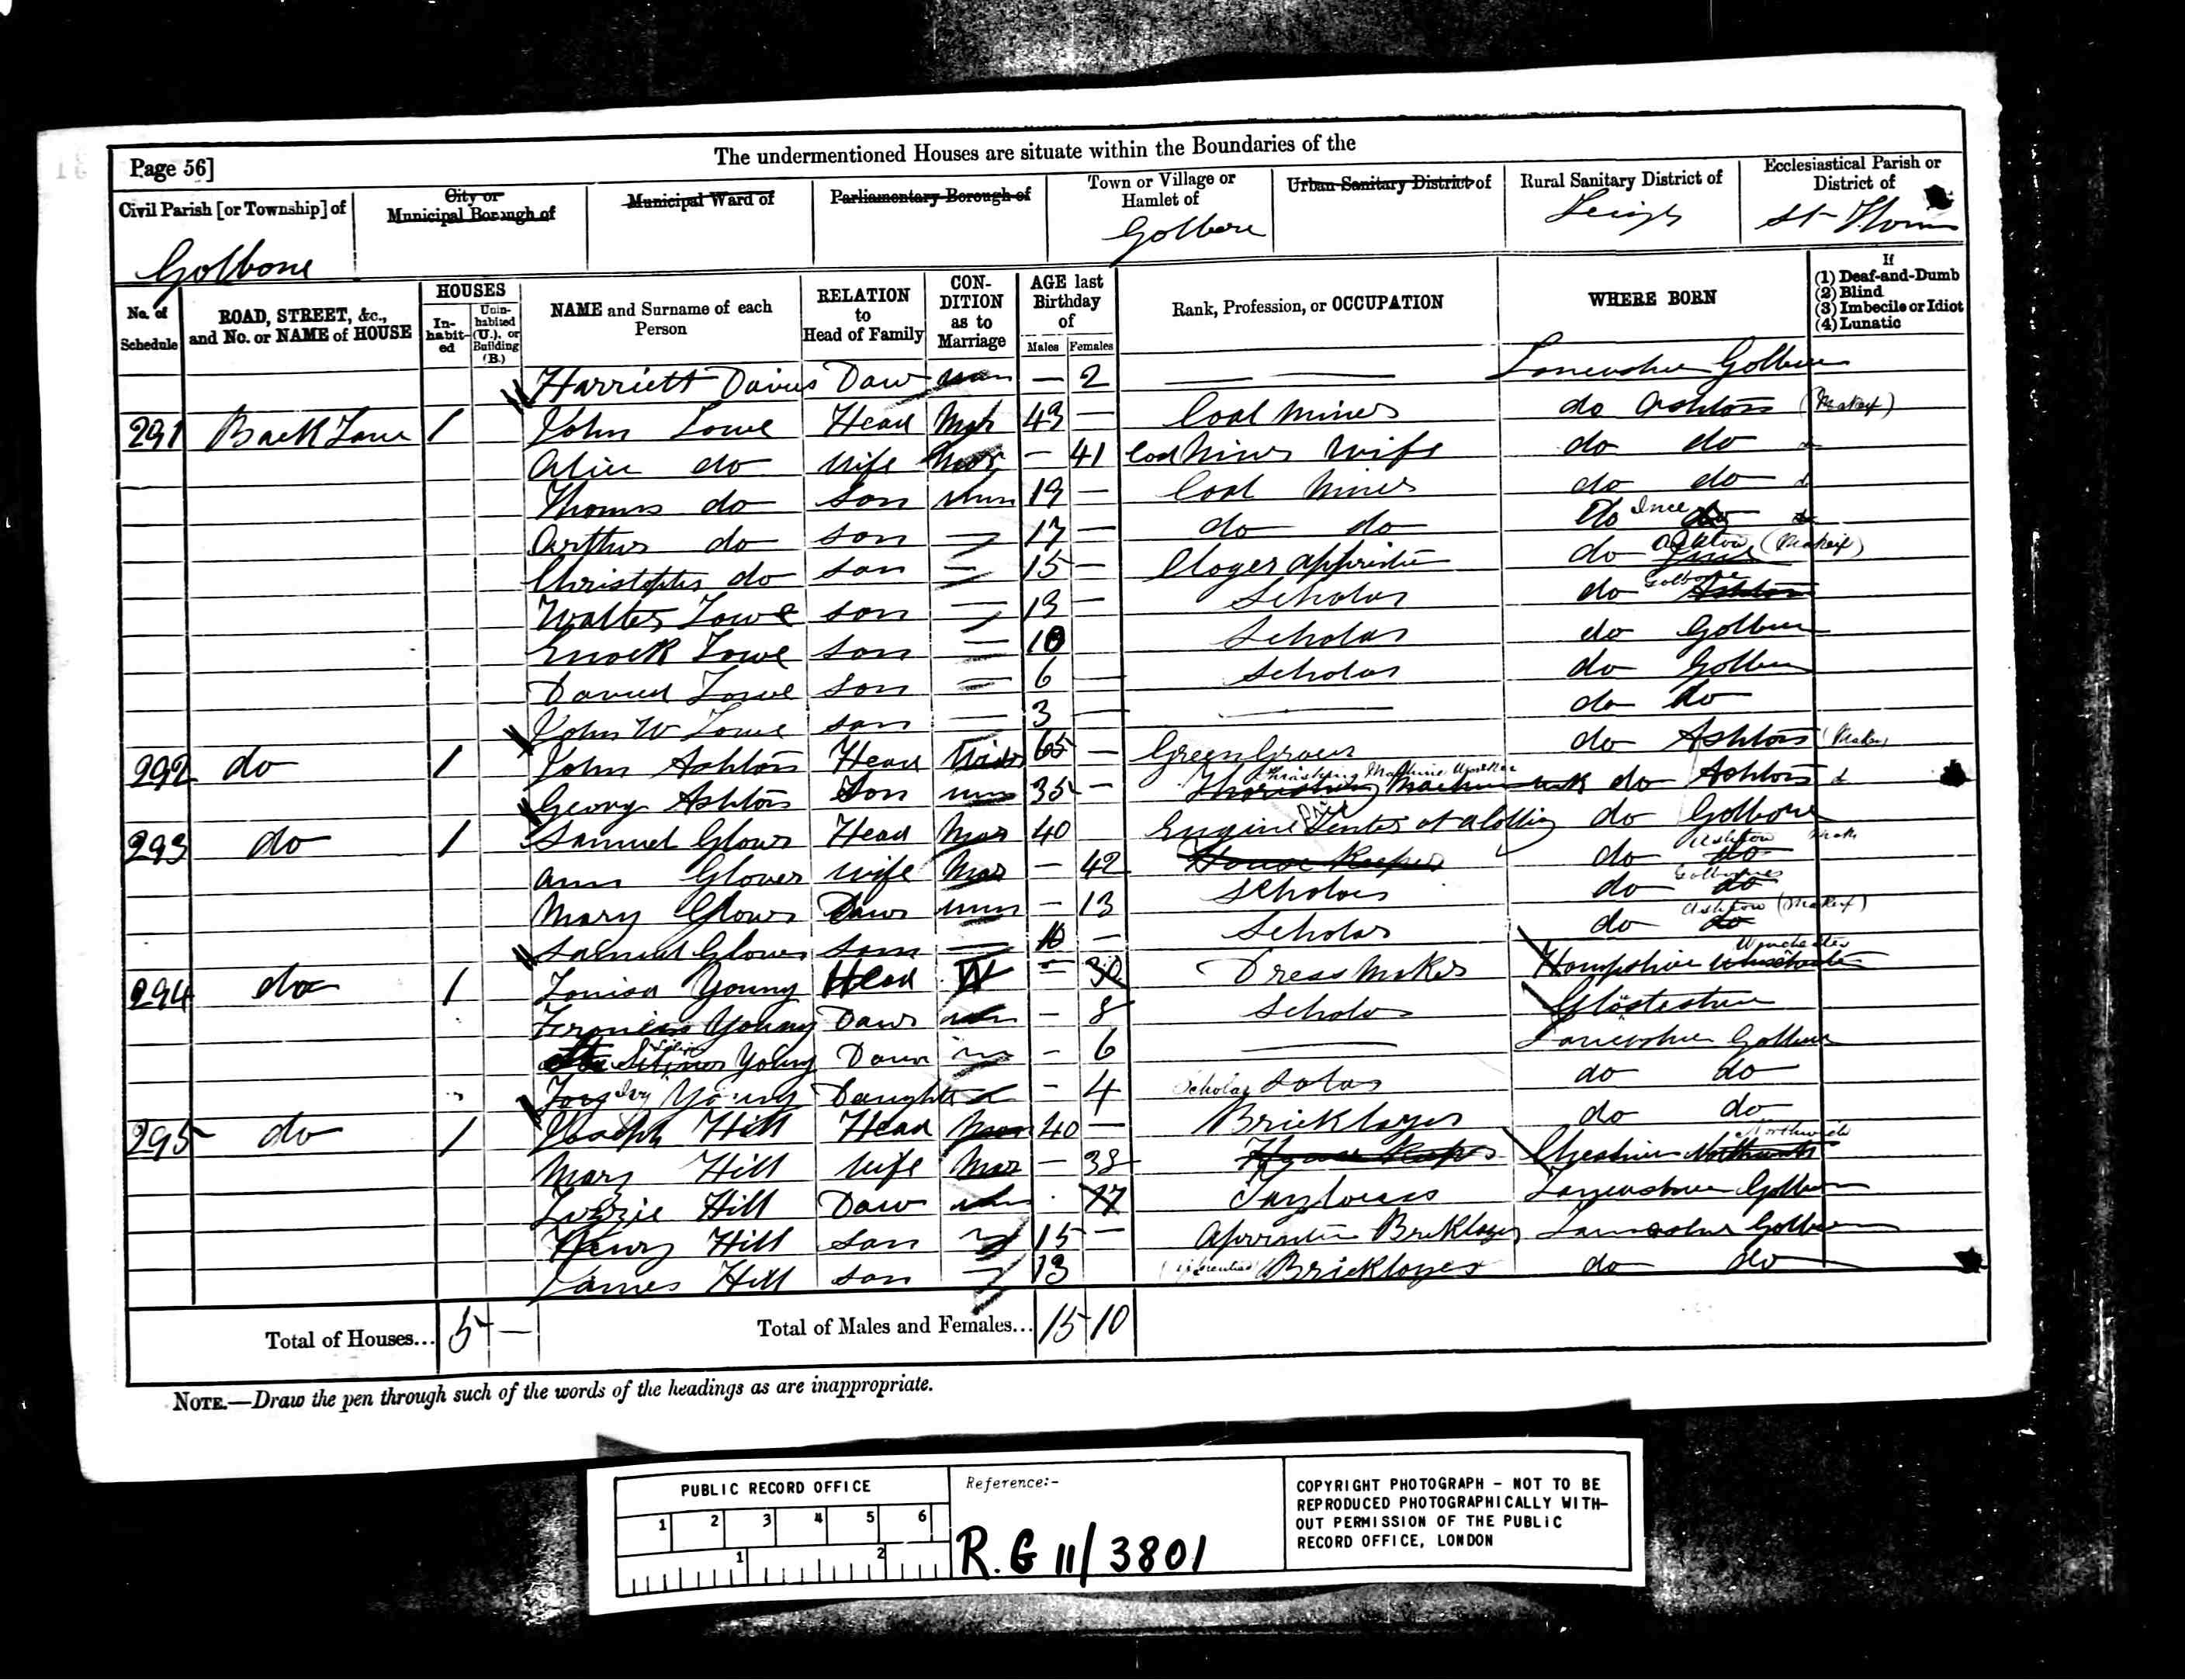 Page 56]
The undermentioned Houses are situate within the Boundaries of the
Civil Parish [or Township] of
City or Municipal Borough of
Municipal Ward of
Parliamentary Borough of
Town or Village or Hamlet of
Urban Sanitary District of
Rural Sanitary District of
Ecclesiastical Parish or District of
Golborne Golborne Leigh St Thomas
No. of Schedule
ROAD, STREET, &c., and No. or NAME of HOUSE
HOUSES
In-habit-ed
Unin-habited (U.), or Building (B.)
NAME and Surname of each Person
RELATION to Head of Family
CON-DITION as to Marriage
AGE last Birthday of
Males Females
Rank, Profession, or OCCUPATION
WHERE BORN
If
(1) Deaf-and-Dumb
(2) Blind
(3) Imbecile or Idiot
(4) Lunatic
Harriett Davies Daur — 2 Lancashire Golborne
291 Back Lane 1 John Lowe Head Mar 43 — Coal Miner do Ashton (Makerf)
Alice do Wife Mar — 41 Coal Miners Wife do do do
Thomas do Son Unm 19 — Coal Miner do do do
Arthur do Son — 17 — do do do Ince
Christopher do Son — 15 — Cloger apprintice do Ashton (Makerf)
Walter Lowe Son — 13 — Scholar do Golborne Ashton
Enock Lowe Son — 10 Scholar do Golborne
David Lowe Son — 6 — Scholar do Golborne
John W Lowe Son — 3 — do do
292 do 1 John Ashton Head 65 — Green Grocer do Ashton
George Ashton Son Unm 35 — Thrashing Machine do Ashton do
293 do 1 Samuel Glover Head Mar 40 Engine Tenter at a Colliery do Golborne
Ann Glover Wife Mar — 42 House Keeper do Ashton do
Mary Glover Daur Unm — 13 Scholar do Golborne do
Samuel Glover Son — 10 — Scholar do Ashton (Makerf) do
294 do 1 Louisa Young Head W — 30 Dress Maker Hampshire Winchester
Young Daur — 8 Scholar
Young Daur — 6 Lancashire Golborne
Ivy Young Daughter — 4 Scholar do do
295 do 1 Joseph Hill Head Mar 40 — Bricklayer do do
Mary Hill Wife Mar — 38 House Keeper Cheshire Northwich
Lizzie Hill Daur 17 Tayloress Lancashire Golborne
Henry Hill Son 15 — Bricklayer Lancashire Golborne
James Hill Son — 13 Bricklayer do do
Total of Houses... 5 —
Total of Males and Females... 15 10
NOTE.—Draw the pen through such of the words of the headings as are inappropriate.
PUBLIC RECORD OFFICE
1 2 3 4 5 6
1 2
Reference:-
R.G 11/3801
COPYRIGHT PHOTOGRAPH - NOT TO BE
REPRODUCED PHOTOGRAPHICALLY WITH-
OUT PERMISSION OF THE PUBLIC
RECORD OFFICE, LONDON